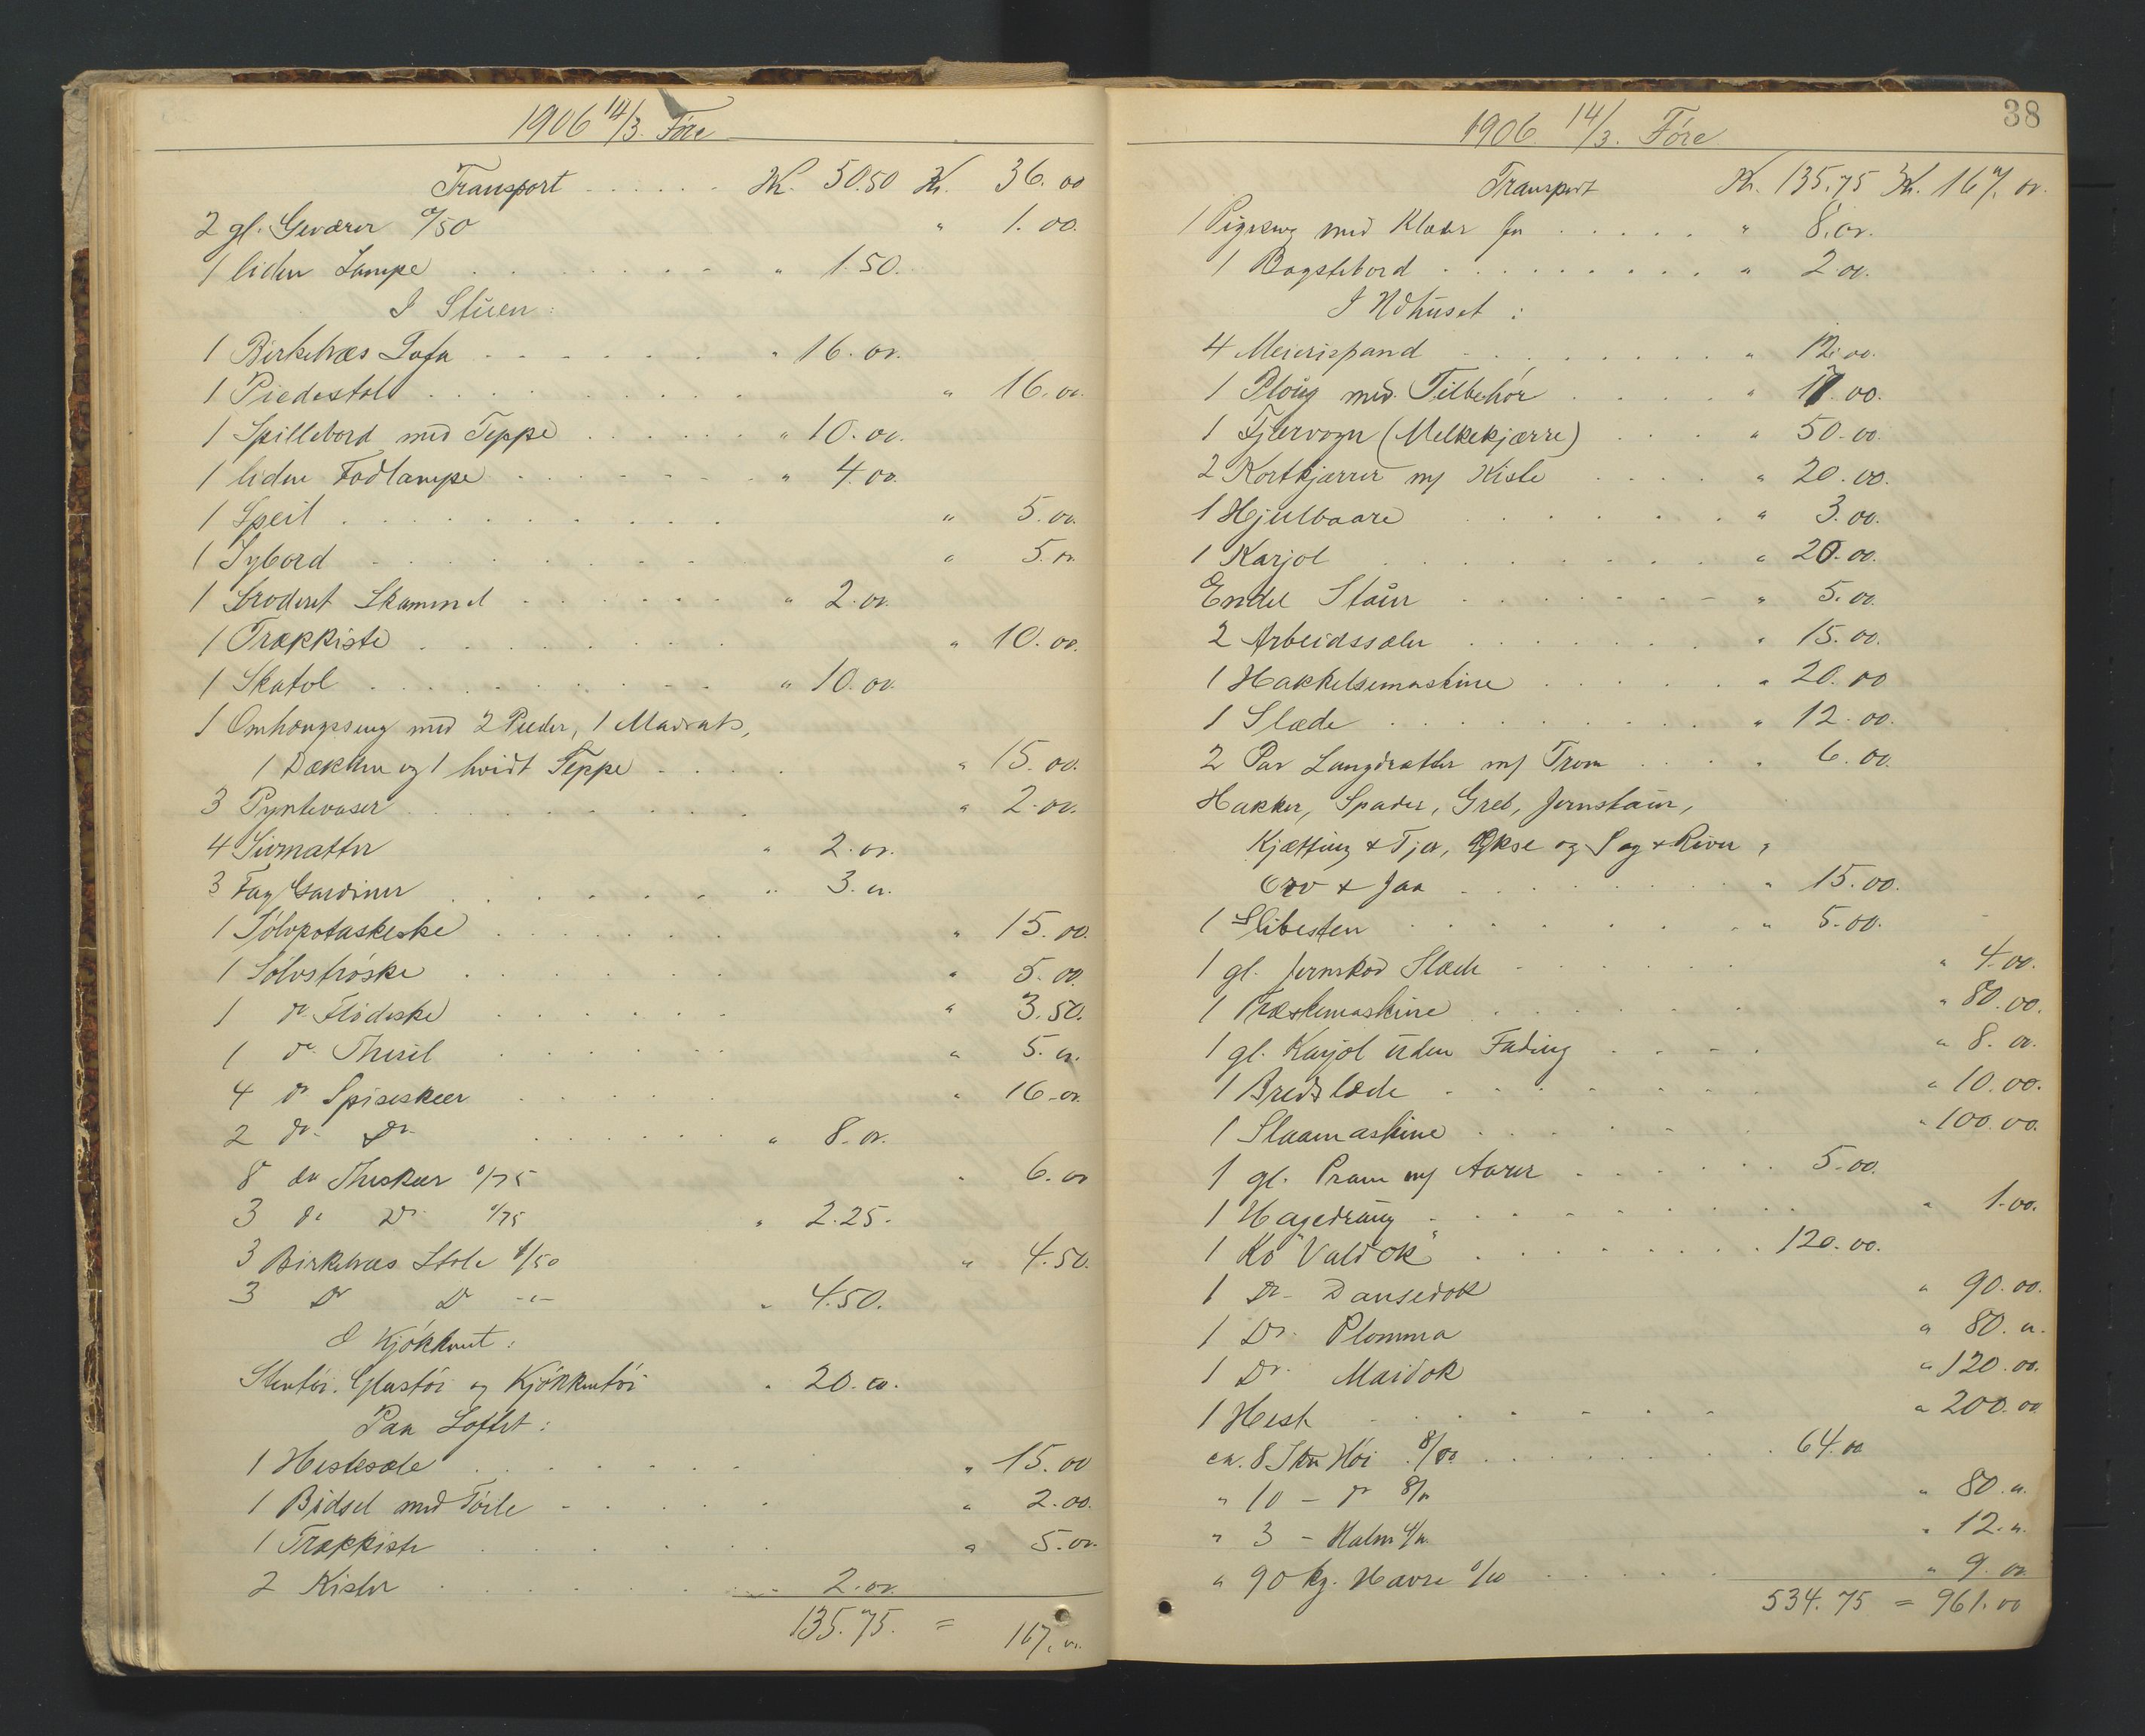 1906 14/3. Före
Transport . . . . . . Kr. 50.50 Kr. 36.00
2 gl. Geværer 0/50 " 1.00.
1 liden Lampe . . . . . . . " 1.50.
I Stuen:
1 Birketræs Sofa . . . . . . " 16.00.
1 Piedestal . . . . . . . . " 16.00.
1 Spillebord med Teppe . . . . . . " 10.00.
1 liden Fodlampe . . . . . . . " 4.00.
1 Speil . . . . . . . . . . " 5.00.
1 Sybord . . . . . . . . " 5.00.
1 broderet Skammel . . . . . . " 2.00.
1 Trækkiste . . . . . . . . " 10.00.
1 Skatol . . . . . . . . . " 10.00.
1 Omhængsseng med 2 Puder, 1 Madrats,
1 Dækken og 1 hvidt Teppe . . . . " 15.00.
3 Pyntevaser . . . . . . . " 2.00.
4 Sivmatter " 2.00.
3 Fag Gardiner . . . . . . " 3.00.
1 Sölvpotaskeske . . . . . . " 15.00.
1 Sölvströske . . . . . . " 5.00.
1 do Flödeske . . . . . . " 3.50.
1 do. Thesil . . . . . . " 5.00.
4 do Spiseskeer . . . . . " 16.00.
2 do. Do. . . . . . . " 8.00.
8 do Theskeer 0/75 " 6.00
3 do Do 0/75 " 2.25.
3 Birketræs Stole 1/50 " 4.50.
3 Do Do -"- " 4.50.
I Kjökkenet:
Stentöi, Glastöi og Kjökkentöi " 20.00.
Paa Loftet:
1 Hestesæle . . . . . . " 15.00
1 Bidsel med Töile . . . . . " 2.00.
1 Trækkiste . . . . . . " 5.00.
2 Kister . . . . . . " 2.00.
135.75. = 167.00.
38
1906 14/3. Före
Transport Kr. 135.75 Kr. 167. 00.
1 Pigeseng med Klæder for . . . . . " 8.00.
1 Bagstebord . . . . . . . . . " 2.00.
I Udhuset:
4 Meierispand . . . . . . . " 12.00.
1 Ploug med Tilbehör . . . . " 17.00.
1 Fjærvogn (Melkekjærre) . . . " 50.00.
2 Kortkjærrer m/ Kiste . . . . " 20.00.
1 Hjulbaare . . . . . . " 3.00.
1 Karjol . . . . . . . " 20.00.
Endel Staur . . . . . . . " 5.00.
2 Arbeidssæler . . . . . . " 15.00.
1 Hakkelsemaskine . . . . . " 20.00
1 Slæde . . . . . . . . " 12.00.
2 Par Langdrætter m/ Trom . . . . 6.00.
Hakker, Spader, Greb, Jernstaur,
Kjætting & Tjor, Økse og Sag & River,
Orv & Jaa . . . . . . . " 15.00.
1 Slibesten . . . . . . . " 5.00.
1 gl. Jernskod Slæde . . . . . " 4.00.
1 Træskemaskine . . . . . . " 80.00.
1 gl. Karjol uden Fading . . . . " 8.00.
1 Bredslæde . . . . . . " 10.00.
1 Slaamaskine . . . . . " 100.00.
1 gl. Pram m/ Aarer . . . . . . 5.00.
1 Hagedraug . . . . . . . . " 1.00.
1 Ko "Valdok" . . . . . . . 120.00.
1 Do - Dansedok " 90.00.
1 Do. Plomma " 80.00.
1 Do. Maidok " 120.00.
1 Hest . . . . . . . " 200.00
ca. 8 Höi 8/00 . . . . . . . 64.00
" 10 - do 8/00 " 80.00.
" 3 - Halm 4/00. " 12.00.
" 90 kg. Havre 0/10 . . . . . " 9.00
534.75 = 961.00